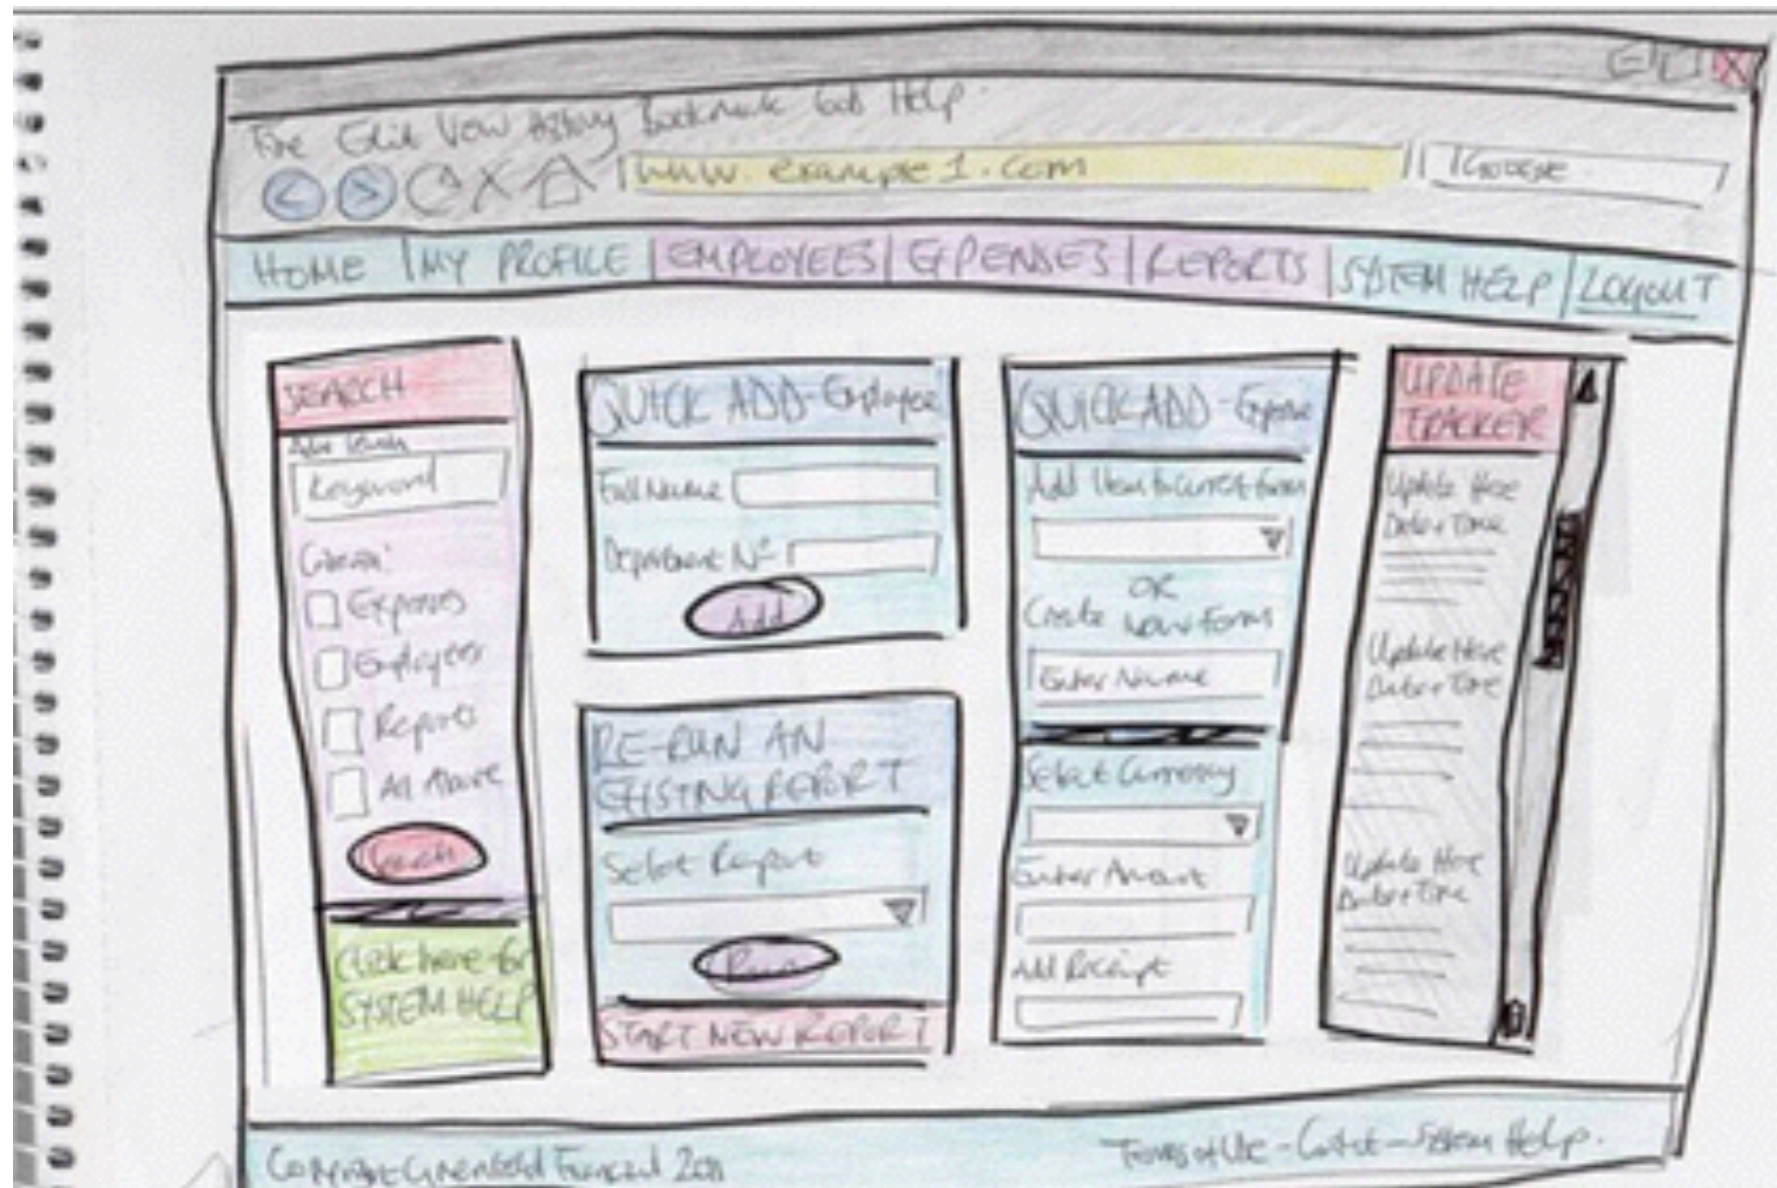 File Edit View History Bookmark Tools Help
www.example1.com
Google
HOME | MY PROFILE | EMPLOYEES | EXPENSES | REPORTS | SYSTEM HELP | LOGOUT
SEARCH
Keyword
Criteria:
Expenses
Employees
Reports
All Above
Search
Click here for
SYSTEM HELP
QUICK ADD-Employee
Full Name
Department Nº
Add
RE-RUN AN
EXISTING REPORT
Select Report
Run
START NEW REPORT
QUICK ADD-Expense
Add Item to current form
OR
Create new form
Enter Name
Select Currency
Enter Amount
Add Receipt
UPDATE
TRACKER
Update Here
Date+Time
Update Here
Date+Time
Update Here
Date+Time
Financial 2011
Terms of Use - Contact - System Help.